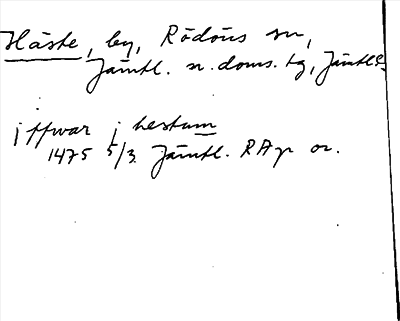 Häste, by, Rödöns sn,
Jämtl. n. doms. tg, Jämtl.
j ffwar j hestum
1475 5/3 Jämtl. RAp or.